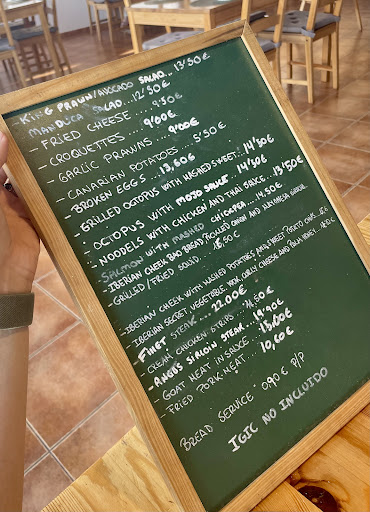 - KING PRAWN/AVOCADO SALAD... 13'50 €
- MANDUCA SALAD... 12'50 €
- FRIED CHEESE ... 9'50 €
- CROQUETTES ... 9'00 €
- GARLIC PRAWNS ... 9'00 €
- CANARIAN POTATOES ... 5'50 €
- BROKEN EGGS . 13,60 €
- GRILLED OCTOPUS WITH MASHED SWEET. 14'50 €
- OCTOPUS WITH MOJO SAUCE 14'50 €
- NOODELS WITH CHICKEN AND THAI SAUCE . 13'50 €
- SALMON WITH MASHED CHICKPEA .. 14.50 €
- IBERIAN CHEEK BAO BREAD, PICKLED ONION AND
- GRILLED/FRIED SQUID ... 18,50 €
- IBERIAN CHEEK WITH MASHED POTATOES AND SWEET POTATO CHIPS
- IBERIAN SECRET, VEGETABLE WOK, CURLY CHEESE AND PALM HONEY
- FILLET STEAK ... 22.00 €
- CREAM CHICKEN STRIPS
- ANGUS SIRLOIN STEAK ... 19'90 €
- GOAT MEAT IN SAUCE ... 13,60 €
- FRIED PORK MEAT ... 10,60 €
BREAD SERVICE 0'90 € P/P
IGIC NO INCLUIDO